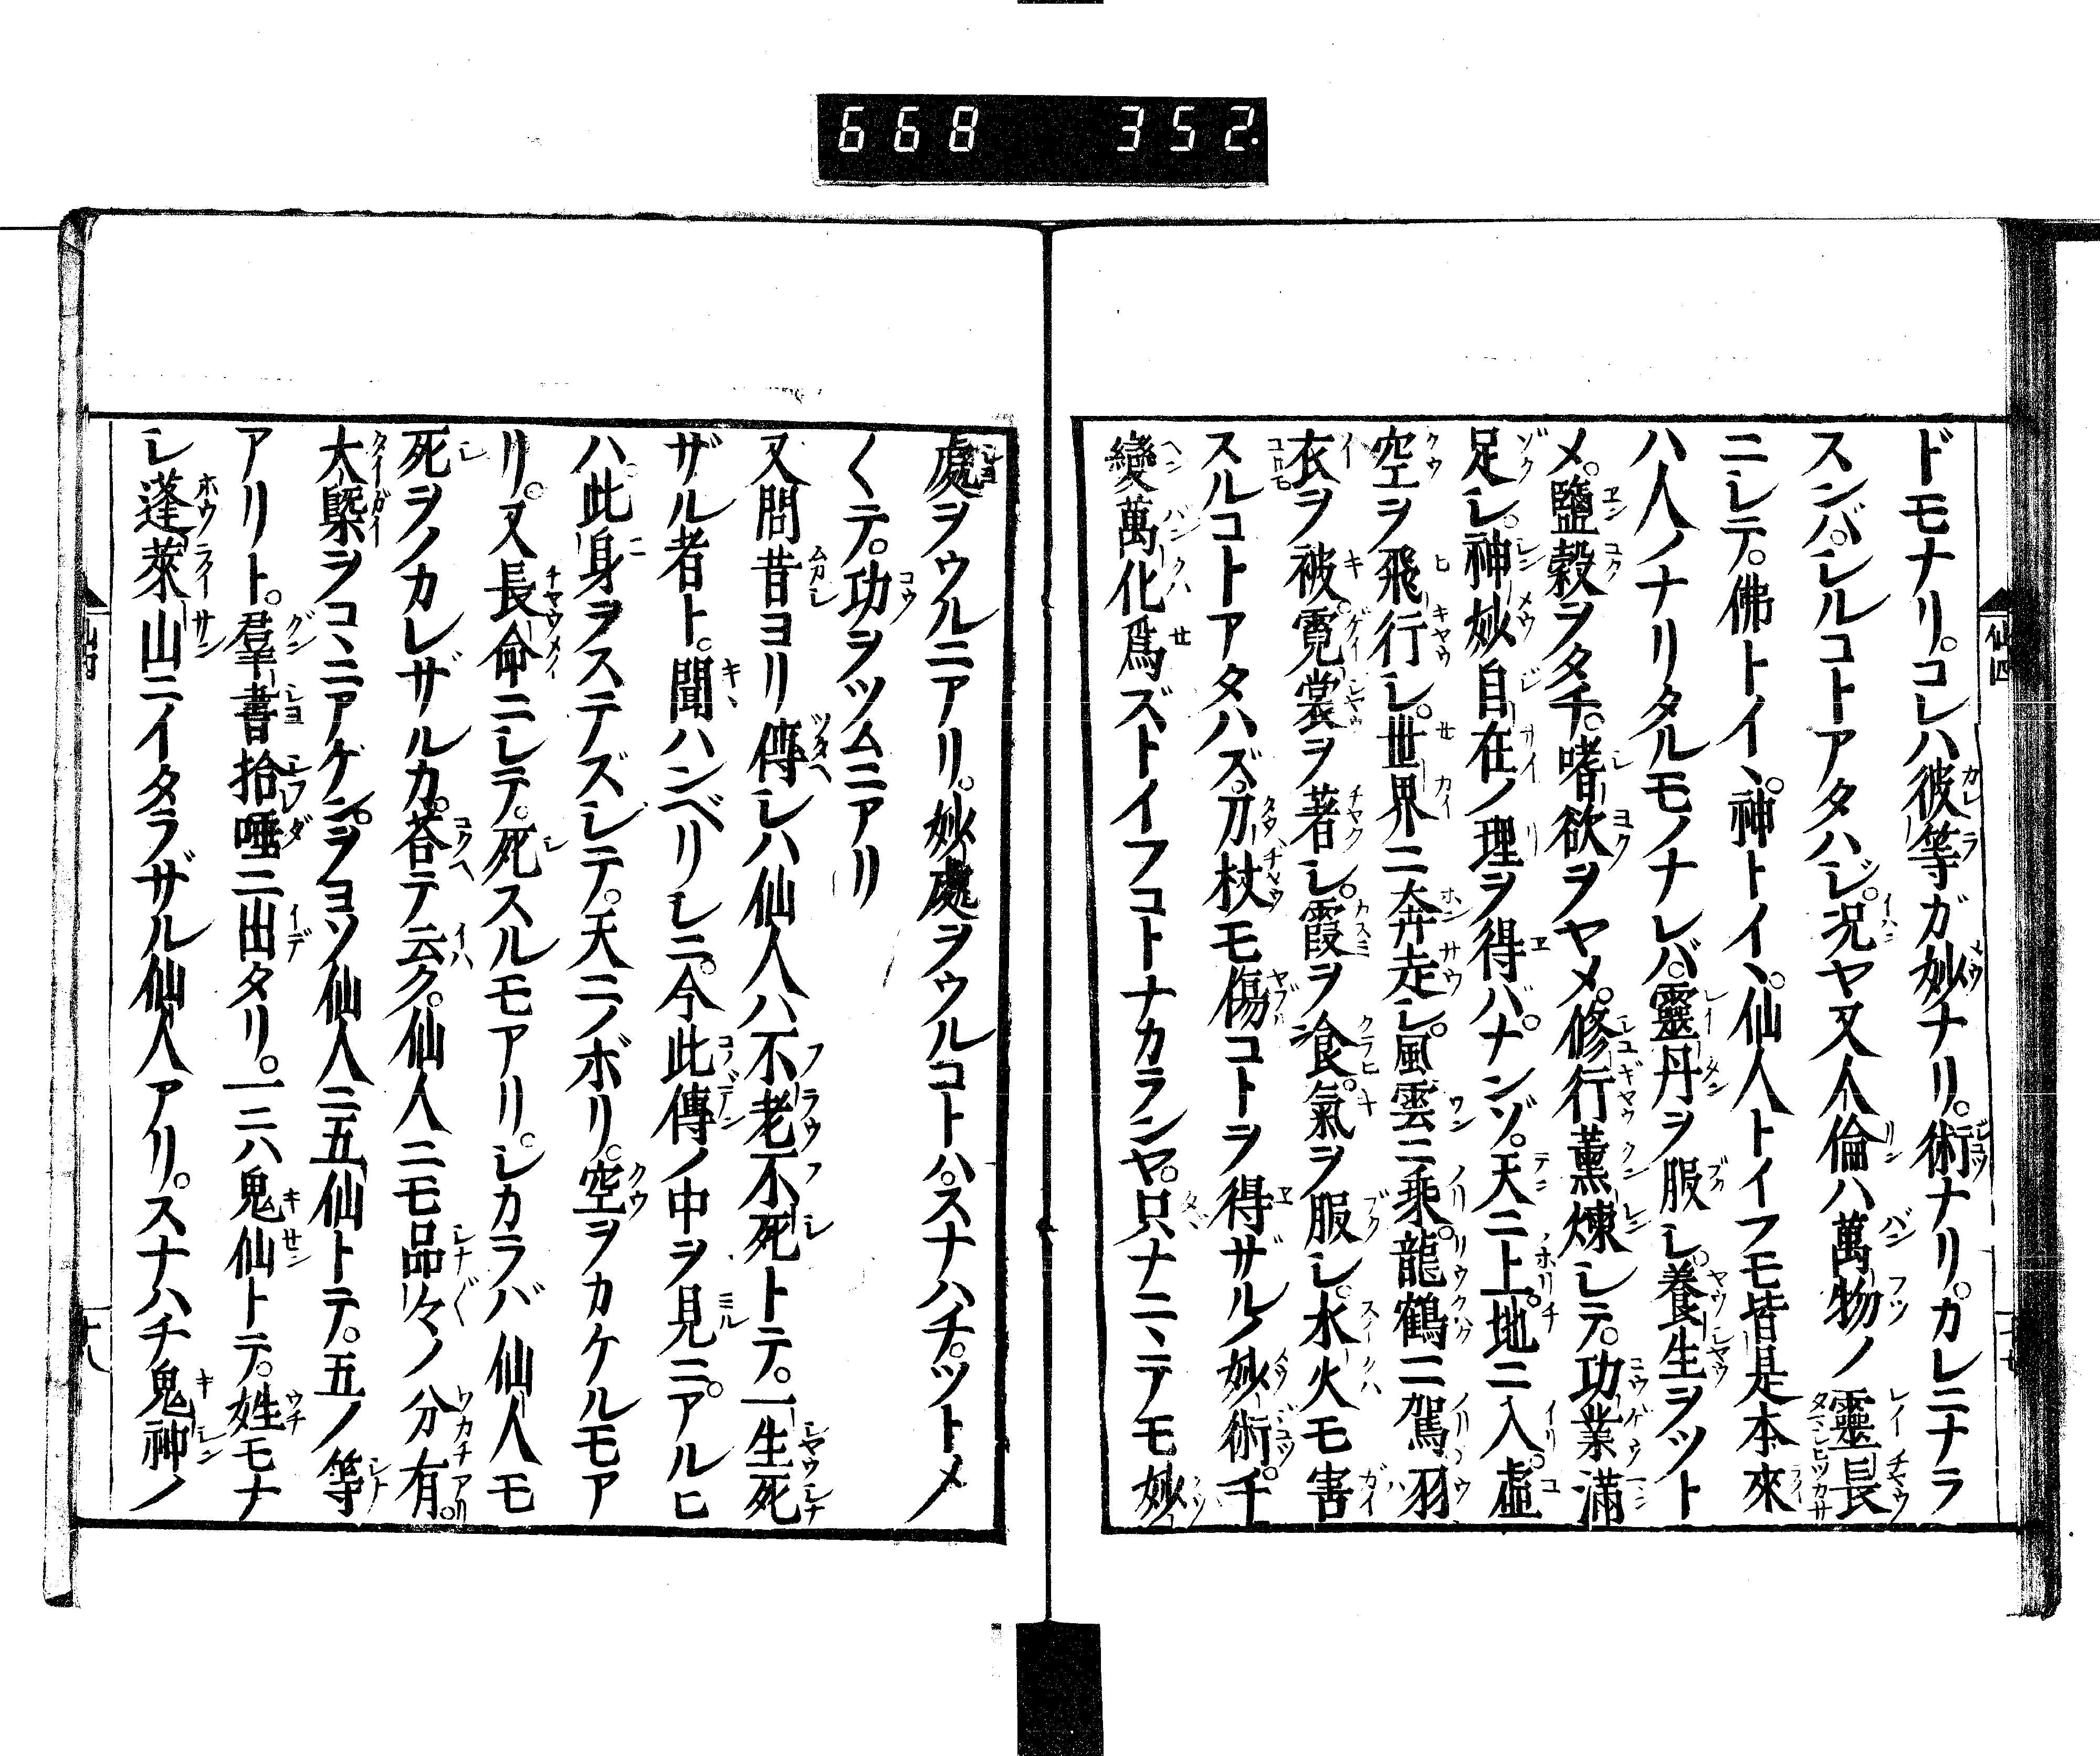 668 352.
ドモナリ。コレハ彼等ガ妙ナリ。術ナリ。カレニナラ
スンバ。シルコトアタハジ。況ヤ又人倫ハ萬物ノ靈長
ニシテ。佛トイヽ。神トイヽ。仙人トイフモ皆是本來
ハ人ノナリタルモノナレバ。靈丹ヲ服シ。養生ヲツト
メ。鹽穀ヲタチ。嗜欲ヲヤメ。修行薫煉シテ。功業滿
足シ。神妙自在ノ理ヲ得バ。ナンゾ。天ニ上。地ニ入。虛
空ヲ飛行シ。世界ニ奔走シ。風雲ニ乘。龍鶴ニ駕。羽
衣ヲ被。霓裳ヲ著シ。霞ヲ食。氣ヲ服シ。水火モ害
スルコトアタハズ。刀杖モ傷コトヲ得ザルノ妙術。千
變萬化爲ズトイフコトナカランヤ。只ナニヽテモ妙
處ヲウルニアリ。妙處ヲウルコトハ。スナハチ。ツトメ
〱テ。功ヲツムニアリ
又問昔ヨリ傳シハ仙人ハ不老不死トテ。一生死
ザル者ト。聞ハンベリシニ。今此傳ノ中ヲ見ニ。アルヒ
ハ。此身ヲステズシテ。天ニノボリ。空ヲカケルモア
リ。又長命ニシテ。死スルモアリ。シカラバ仙人モ
死ヲノカレザルカ。荅テ云ク。仙人ニモ品々ノ分有。
大槩ヲコヽニアケン。ヲヨソ仙人ニ五仙トテ。五ノ等
アリト。羣書拾唾ニ出タリ。一ニハ鬼仙トテ。姓モナ
シ蓬萊山ニイタラザル仙人アリ。スナハチ鬼神ノ
仙四